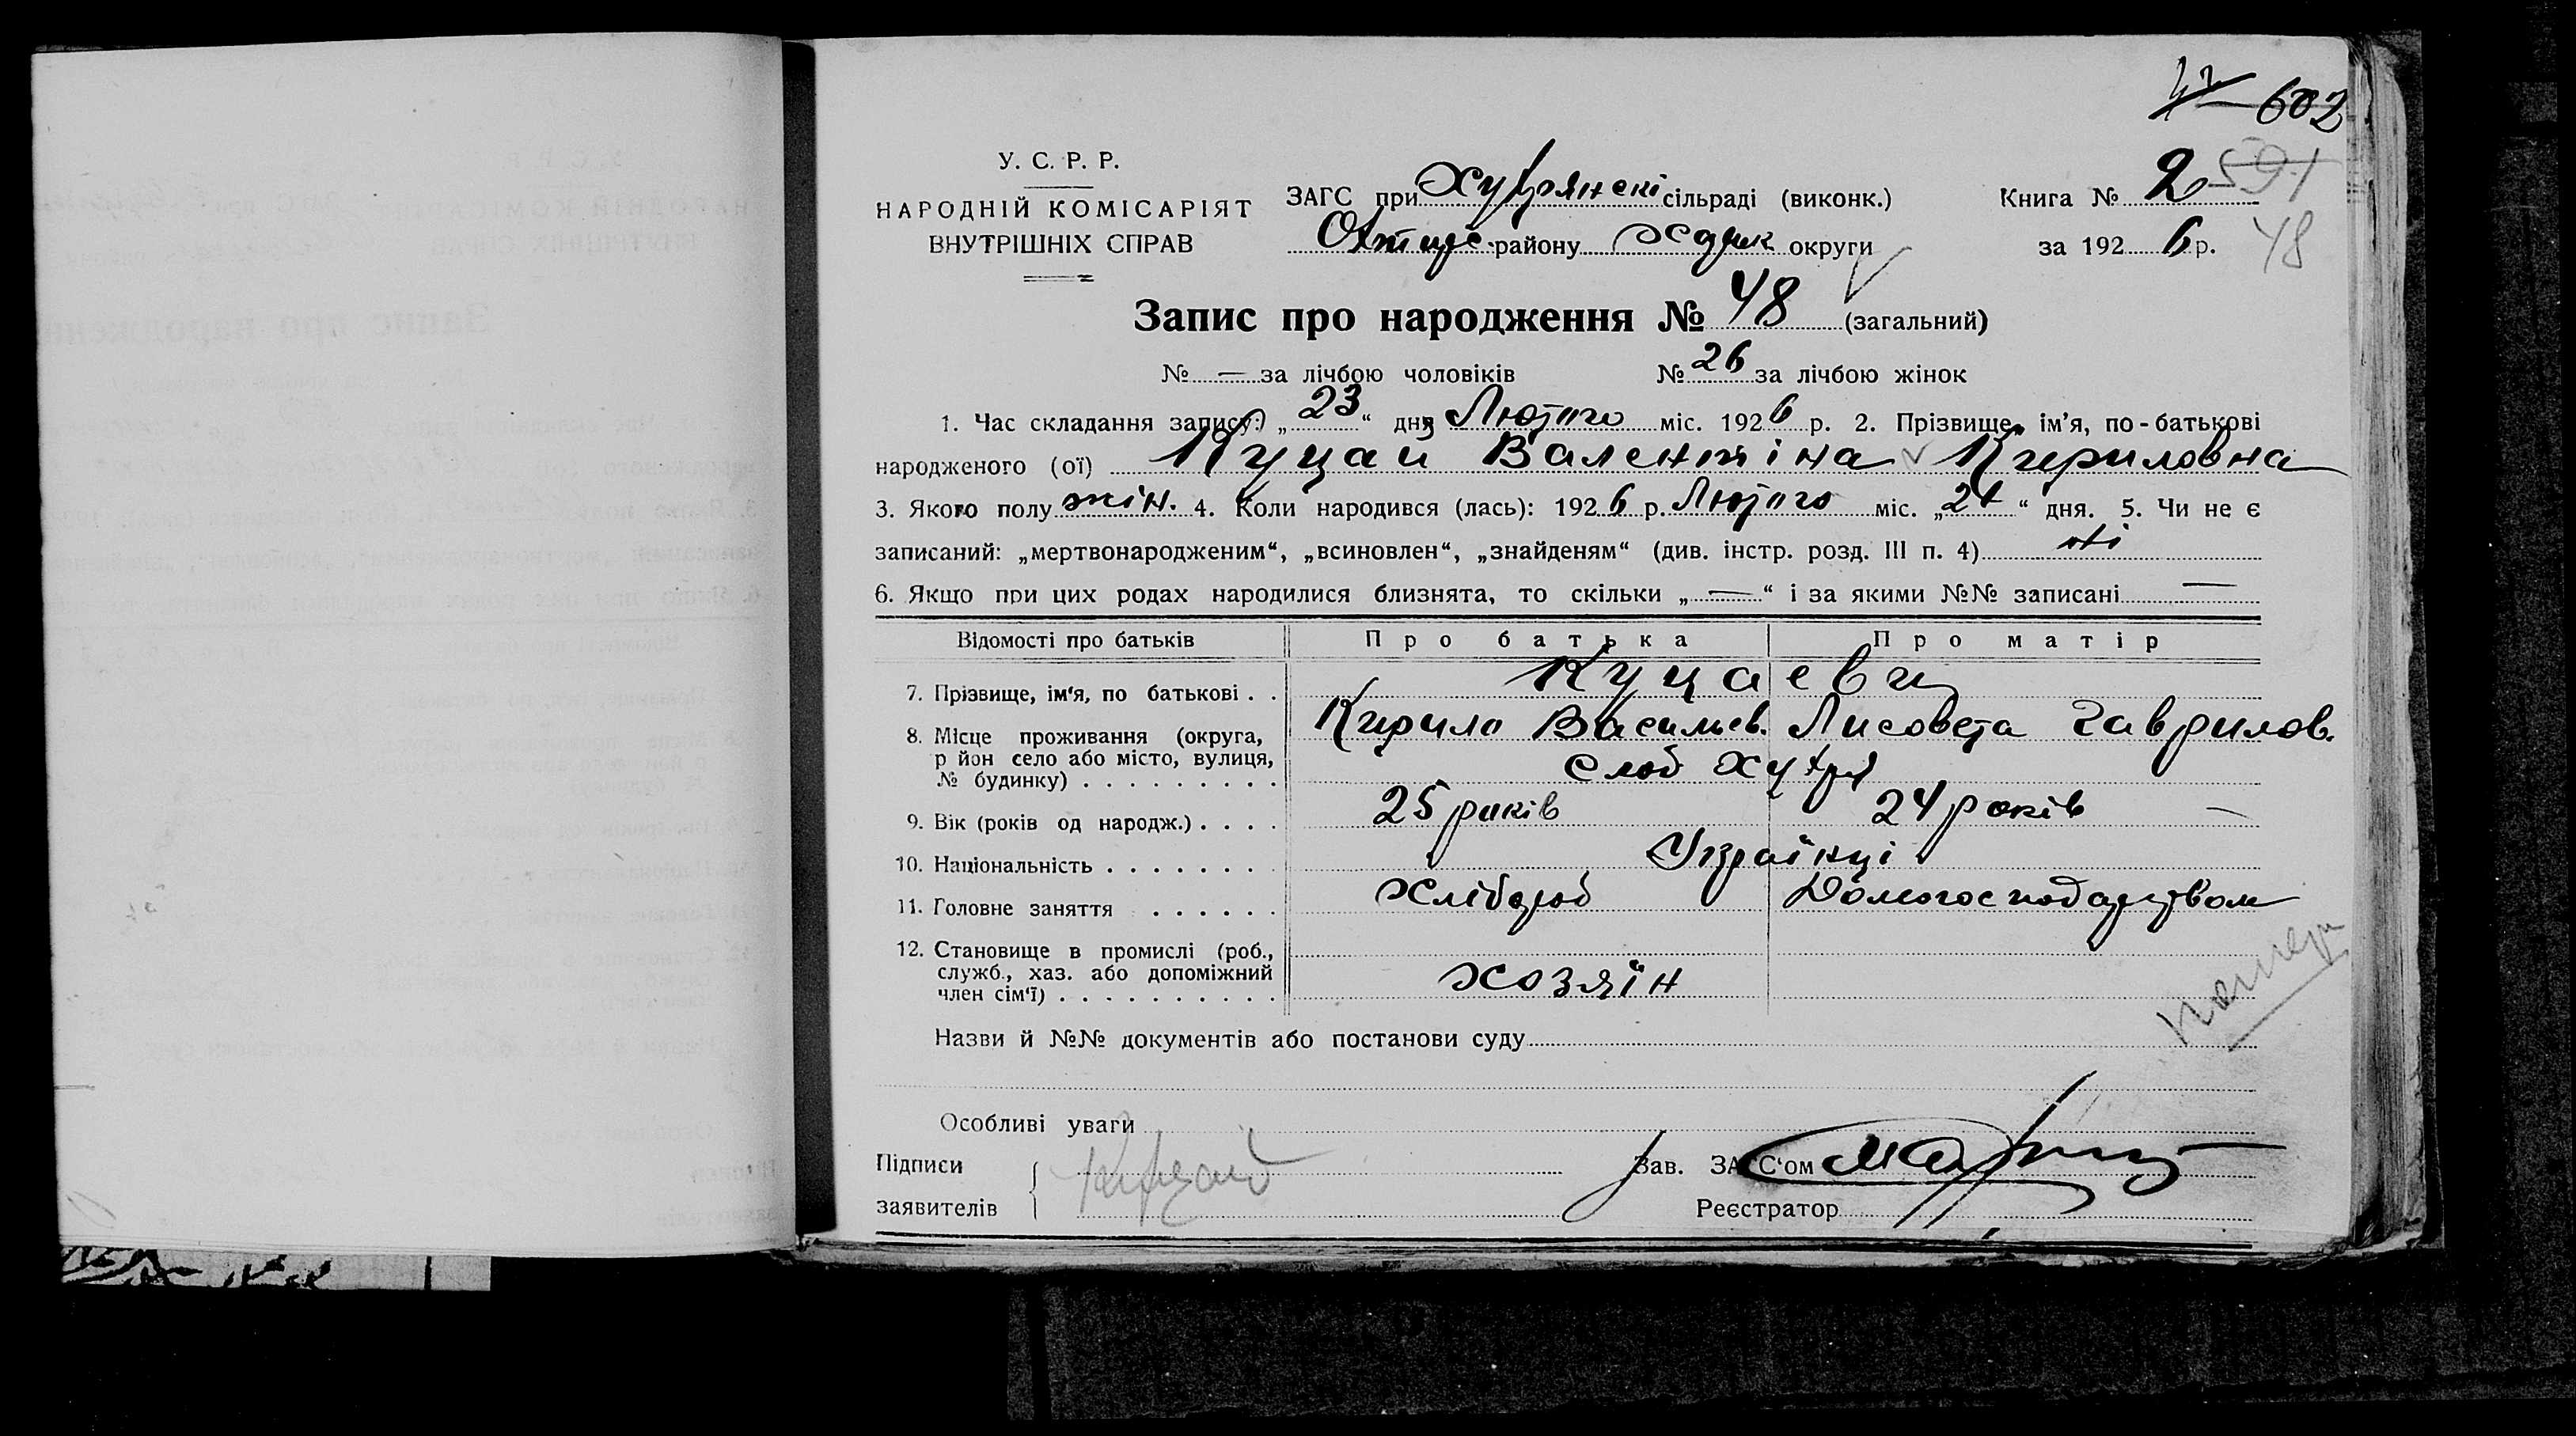 602
У. С. Р. Р.
НАРОДНІЙ КОМІСАРІЯТ
ВНУТРІШНІХ СПРАВ
ЗАГС при Хухрянскі сільраді (виконк.)
района округи
Книга № 2 591
за 192 6 р. 48
Запис про народження № 48 (загальний)
№ — за лічбою чоловіків № 26 за лічбою жінок
1. Час складання запису: „ 23 “ дня Лютого міс. 192 6 р. 2. Прізвище, ім’я, по-батькові
народженого (ої) Куцай Валентіна Кириловна
3. Якого полу жін. 4. Коли народився (лась): 192 6 р. Лютого міс. „ 21 “ дня. 5. Чи не є
записаний: „мертвонародженим“, „всиновлен“, „знайденям“ (див. інстр. розд. III п. 4) ні
6. Якщо при цих родах народилися близнята, то скільки „ — “ і за якими №№ записані —
Відомості про батьків Про батька Про матір
7. Прізвище, ім’я, по батькові . . Куцаеви
Кирило Васильев. Лисовета Гаврилов.
8. Місце проживання (округа,
р йон село або місто, вулиця,
№ будинку) . . . . . . . . . Слоб Хухря
9. Вік (років од народж.) . . . . 25 років 24 років —
10. Національність . . . . . . . Українці
11. Головне заняття . . . . . . Хлібороб Домогосподарством
12. Становище в промислі (роб.,
служб., хаз. або допоміжний
член сім’ї) . . . . . . . . . . хозяїн
Назви й №№ документів або постанови суду
Особливі уваги
Підписи
заявителів Куцай
Зав. ЗАГС‘ом
Реєстратор